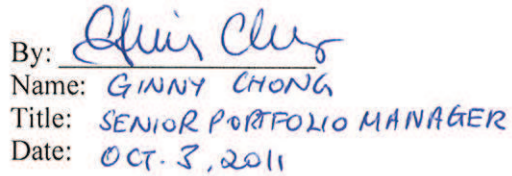 By:
Name: GINNY CHONG
Title: SENIOR PORTFOLIO MANAGER
Date: OCT. 3, 2011